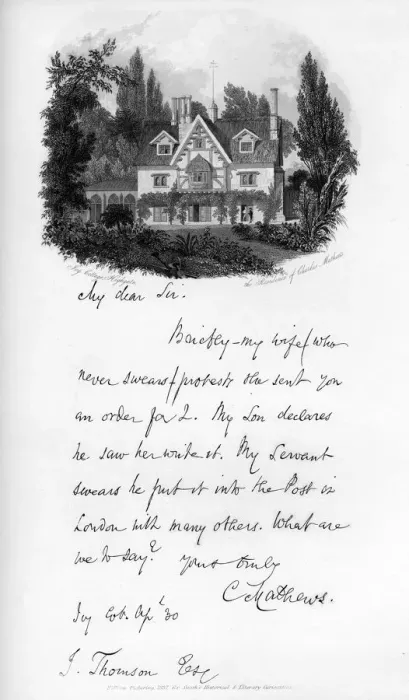 Ivy Cottage, Highgate, the Residence of Charles Mathews
My dear Sir.
Briefly – my wife (who
never swears) protests she sent you
an order for 2. My Son declares
he saw her write it. My Servant
swears he put it into the Post in
London with many others. What are
we to say? yours truly
C Mathews.
Ivy Cot. Apl 30
J. Thomson Esq